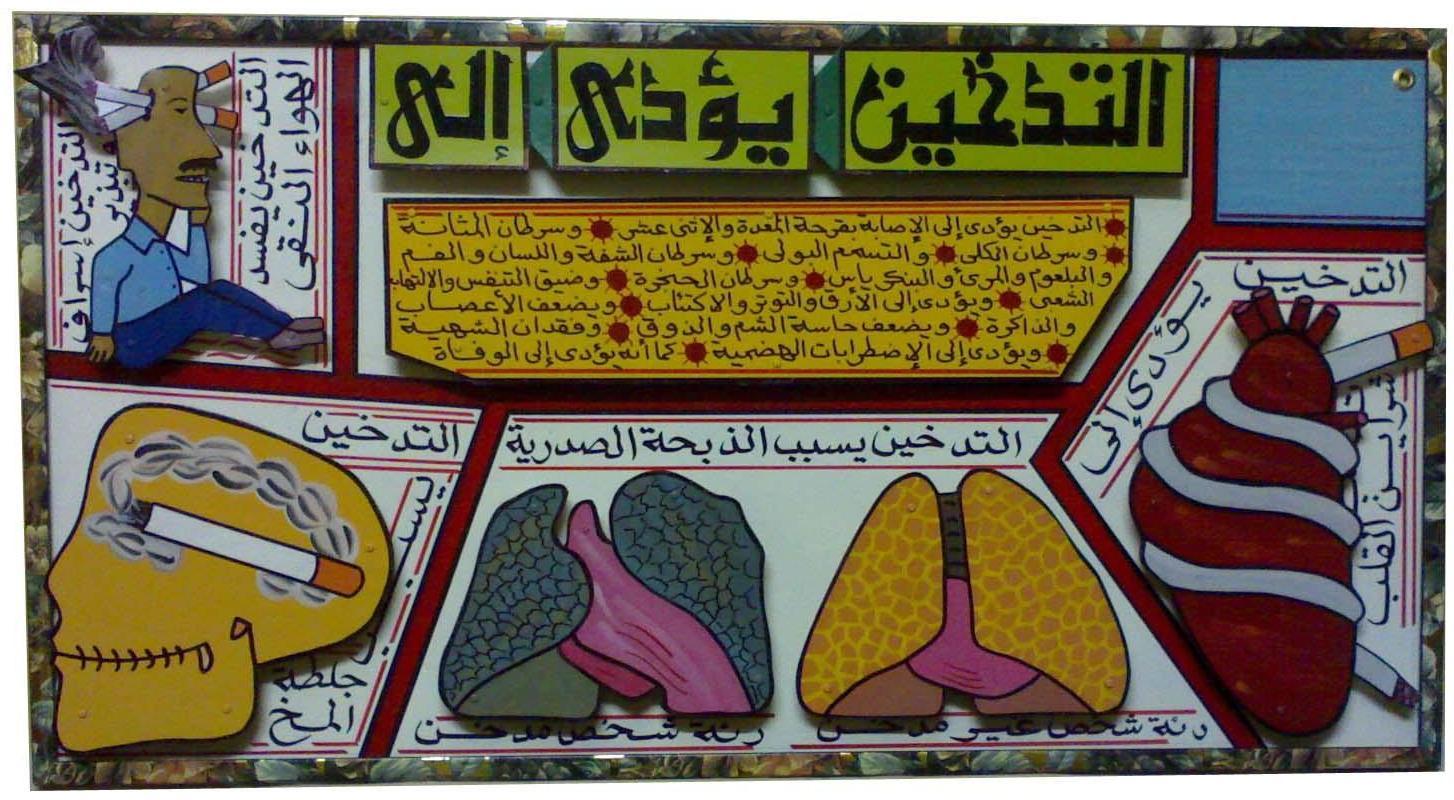 التدخين يؤدى إلى
التدخين يؤدى إلى الإصابة بقرحة المعدة والإثنى عشى وسرطان المثانة
وسرطان الكلى والتسمم البولى وسرطان الشفة واللسان والفم
والبلعوم والمرئ والبنكرياس وسرطان الحنجرة وضيق التنفس والالتهاب
الشعبى ويؤدى إلى الأرق والتوتر والاكتئاب ويضعف الأعصاب
والذاكرة ويضعف حاسة الشم والذوق وفقدان الشهية
ويؤدى إلى الإضطرابات الهضمية كما أنه يؤدى إلى الوفاة
التدخين يفسد
الهواء النقى
التدخين إسراف
وتبذير
التدخين
يؤدى إلى
شرايين القلب
التدخين يسبب الذبحة الصدرية
رئة شخص غير مدخن
رئة شخص مدخن
التدخين
يسبب
جلطة
المخ